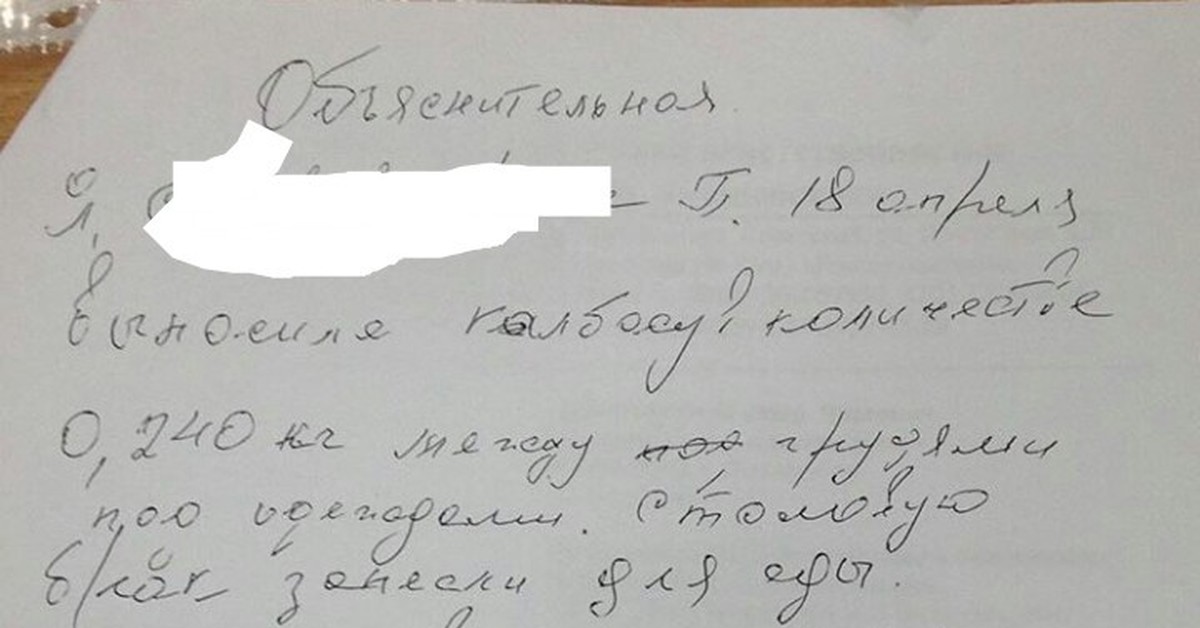 Объяснительная
Я, П. 18 апреля
выносиля колбасу в количестве
0,240 кг между грудями
под одеждами. Столовую
заnесли для еды.